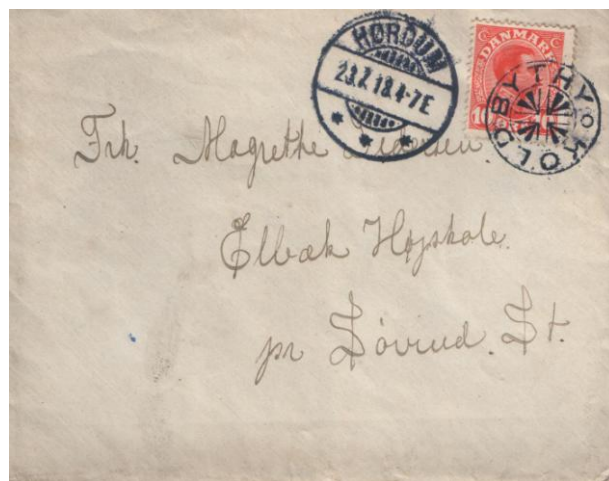 HØRDUM
23.7.18.4-7E
DANMARK
10
KOLDBY THY
Frk. Magrethe Pedersen.
Elbæk Højskole.
pr Søvind. St.